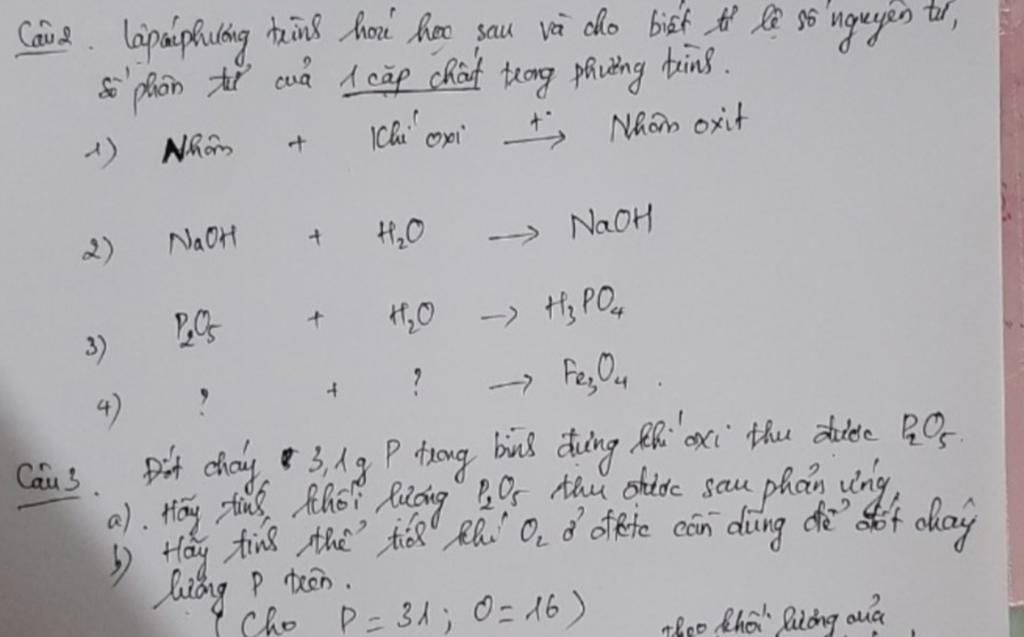 Câu 2. Lập các phương trình hoá học sau và cho biết tỉ lệ số nguyên tử,
số phân tử của 1 cặp chất trong phương trình.
1) Nhôm + Khí oxi t° → Nhôm oxit
2) NaOH + H₂O → NaOH
3) P₂O₅ + H₂O → H₃PO₄
4) ? + ? → Fe₃O₄.
Câu 3. Đốt cháy 3,1g P trong bình đựng khí oxi thu được P₂O₅.
a). Hãy tính khối lượng P₂O₅ thu được sau phản ứng
b) Hãy tính thể tích khí O₂ ở đktc cần dùng để đốt cháy
lượng P trên.
(Cho P = 31; O = 16)
theo khối lượng của